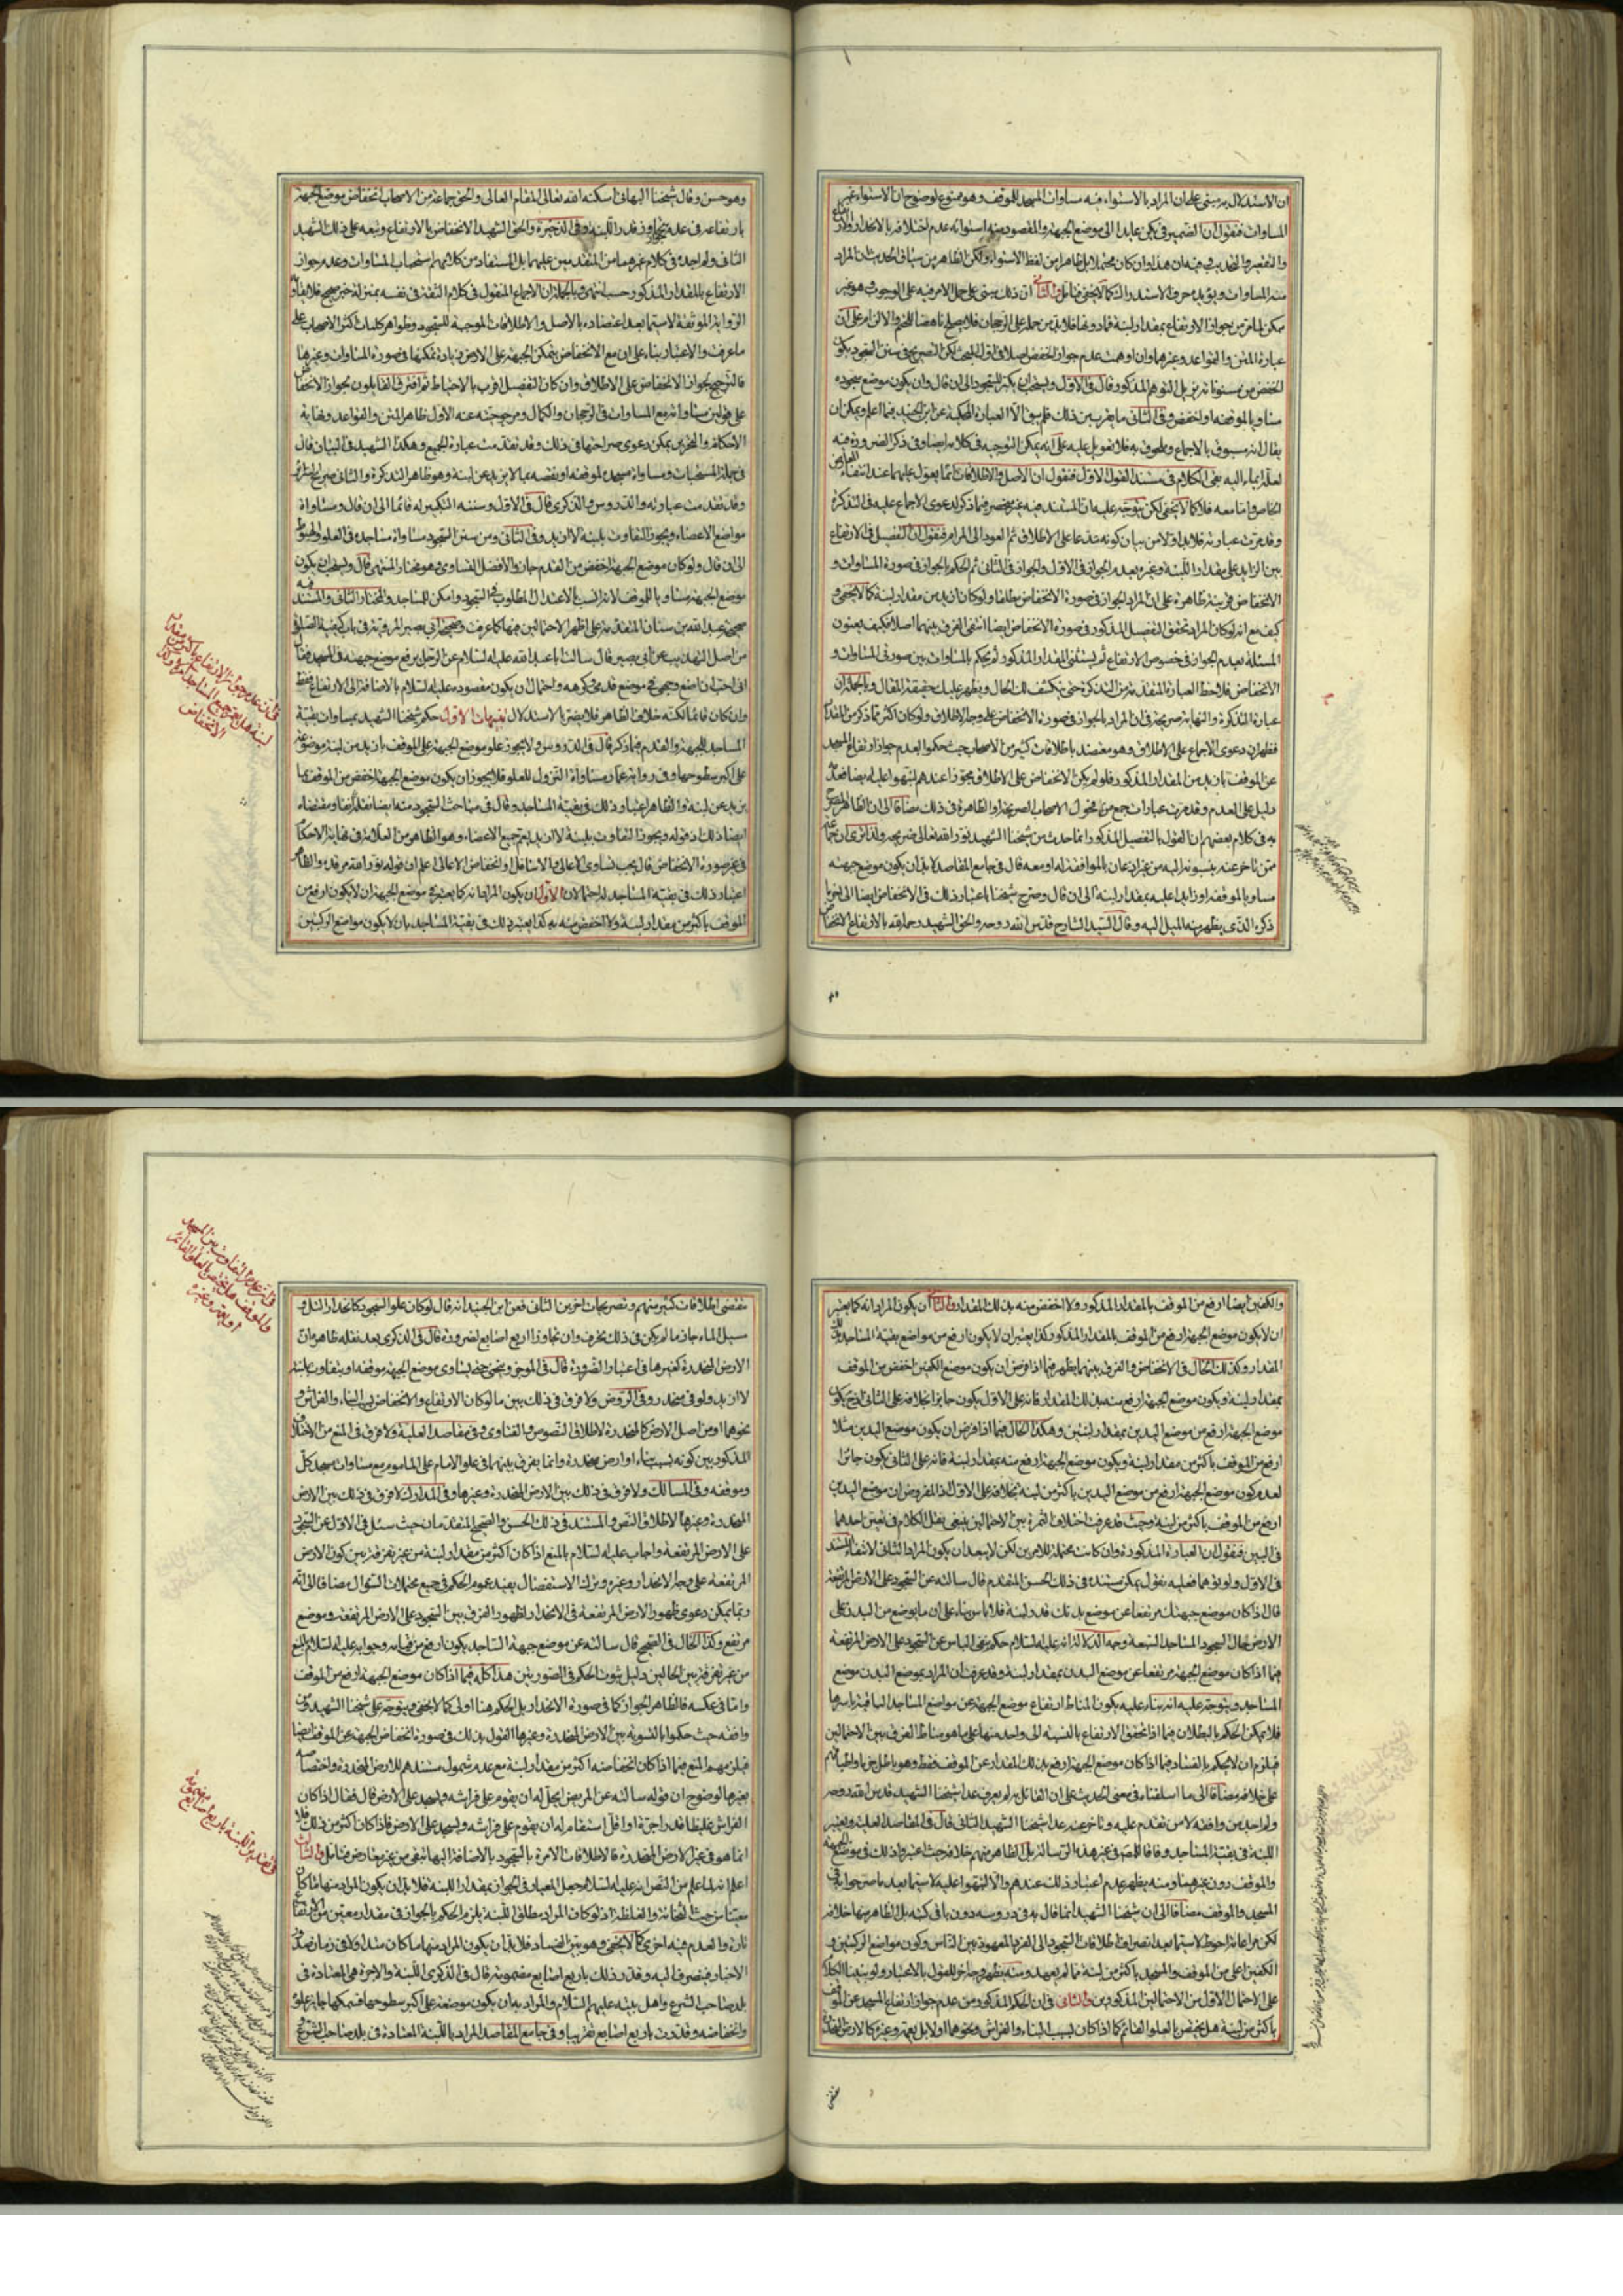 ان الاستدلال به مبنى على ان المراد بالاستواء فيه مساوات المسجد للموقف وهو ممنوع لوضوح ان الاستواء غير
المساوات فنقول ان الضمير فى يكن عايد الى موضع الجبهة والمقصود منه استوائه عدم اختلافه بالانحدار
والتقعير والتحديب فيه ان هذا وان كان محتملا بل ظاهرا من لفظ الاستواء ولكن الظاهر من سياق الحديث ان المراد
منه المساوات ويؤيده حرف الاستدراك كما لا يخفى فتامل والثانى ان ذلك مبنى على حمل الامر فيه على الوجوب وهو غير
ممكن لما مر من جواز الارتفاع بمقدار لبنة فما دونها فلابد من حمله على الرجحان فلا يصلح ناهضا للتحريم والالزام على ان
عبارة المتن والقواعد وغيرهما وان اوهمت عدم جواز الخفض اصلا فى اول البحث لكن التصريح فى سنن السجود بكون
اخفض من مستوياته يزيل التوهم المذكور قال فى الاول ويستحب ان يكبر للسجود الى ان قال وان يكون موضع سجوده
مساويا لموقفه او اخفض وفى الثانى ما يقرب من ذلك فلم يبق الا العبارة المحكية عن ابن الجنيد فيما اعلم ويمكن ان
يقال انه مسبوق بالاجماع وملحوق به فلا تعويل عليه على انه يمكن التوجيه فى كلامه ايضا وفى ذكر الضرورة فيه
لعله ايماء اليه بقى الكلام فى مستند القول الاول فنقول ان الاصل والاطلاقات انما يعول عليهما عند انتفاء المعارض
الخاص واما معه فلا كما لا يخفى لكن يتوجه عليه ان المستند فيه غير منحصر فيما ذكر لدعوى الاجماع عليه فى التذكرة
وقد مرت عبارته فلابد اولا من بيان كونه مدعا على الاطلاق ثم العود الى المرام فنقول ان التفصيل فى الارتفاع
بين الزايد على مقدار اللبنة وغيره بعدم الجواز فى الاول والجواز فى الثانى ثم الحكم بالجواز فى صورة المساوات و
الانخفاض قرينة ظاهرة على ان المراد الجواز فى صورة الانخفاض مطلقا ولو كان ازيد من مقدار لبنة كما لا يخفى و
كيف مع انه لو كان المراد تحقق التفصيل المذكور فى صورة الانخفاض ايضا انتفى الفرق بينهما اصلا فكيف يعنون
المسئلة بعدم الجواز فى خصوص الارتفاع ثم يستثنى المقدار المذكور ثم يحكم بالمساوات بين صورتى المساوات و
الانخفاض فلاحظ العبارة المتقدمة من التذكرة حتى ينكشف لك الحال ويظهر عليك حقيقة المقال وبالجملة ان
عبارة التذكرة والنهاية صريحة فى ان المراد بالجواز فى صورة الانخفاض على وجه الاطلاق ولو كان اكثر مما ذكر من المقدار
فظهر ان دعوى الاجماع على الاطلاق وهو معتضد باطلاقات كثير من الاصحاب حيث حكموا بعدم جواز ارتفاع المسجد
عن الموقف بازيد من المقدار المذكور فلو لم يكن الانخفاض على الاطلاق مجوزا عندهم لنبهوا عليه ايضا فعدمه
دليل على العدم وقد مرت عبارات جمع من فحول الاصحاب الصريحة او الظاهرة فى ذلك مضافا الى ان الظاهر المصرح
به فى كلام بعضهم ان القول بالتفصيل المذكور انما حدث من شيخنا الشهيد نور الله تعالى ضريحه ولذا ترى ان جماعة
ممن تاخر عنه ينسبونه اليه من غير اذعان بالموافقة له او معه قال فى جامع المقاصد لابد ان يكون موضع جبهته
مساويا لموقفه او زايدا عليه بمقدار لبنة الى ان قال وصرح شيخنا باعتبار ذلك فى الانخفاض ايضا الى اخر ما
ذكره الذى يظهر منه الميل اليه وقال السيد الشارح قدس الله روحه والحق الشهيد رحمه الله بالارتفاع الانخفاض
وهو حسن وقال شيخنا البهائى اسكنه الله تعالى المقام العالى والحق جماعة من الاصحاب انخفاض موضع الجبهة
بارتفاعه فى عدم تجاوز قدر اللبنة وفى الذخيرة والحق الشهيد الانخفاض بالارتفاع وتبعه على ذلك الشهيد
الثانى ولم اجده فى كلام غيرهما من المتقدمين عليهما بل المستفاد من كلامهم استحباب المساوات وعدم جواز
الارتفاع بالمقدار المذكور حسب انتهى وبالجملة ان الاجماع المنقول فى كلام الثقة فى نفسه بمنزلة خبر صحيح فلا يقاوم
الرواية الموثقة لاسيما بعد اعتضاده بالاصل والاطلاقات الموجبة للسجود وظواهر كلمات اكثر الاصحاب على
ما عرفت والاعتبار بناء على ان مع الانخفاض يتمكن الجبهة على الارض زيادة تمكنها فى صورة المساوات وغيرها
فالترجيح بجواز الانخفاض على الاطلاق وان كان التفصيل اقرب بالاحتياط ثم افترق القايلون بجواز الانخفاض
على قولين مساواته مع المساوات فى الرجحان والكمال ومرجوحيته عنه الاول ظاهر المتن والقواعد ونهاية
الاحكام والتحرير بل يمكن دعوى صراحتها فى ذلك وقد تقدمت عبارة الجميع وهكذا الشهيد فى البيان قال
فى جملة المستحبات ومساواة مسجده لموقفه او نقصه بما لا يزيد عن لبنة وهو ظاهر التذكرة والثانى صريح المنتهى
وقد تقدمت عبارته والدروس والذكرى قال فى الاول وسننه التكبير له قائما الى ان قال ومساواة
مواضع الاعضاء ويجوز التفاوت بلبنة لا ازيد وفى الثانى ومن سنن السجود مساواة مساجده فى العلو والهبوط
الى ان قال ولو كان موضع الجبهة اخفض من القدم جاز والافضل التساوى وهو مختار المنتهى قال ويستحب ان يكون
موضع الجبهة مساويا للموقف لانه انسب بالاعتدال المطلوب فى السجود وامكن للساجد والمختار الثانى والمستند فيه
صحيحة عبد الله بن سنان المتقدمة على اظهر الاحتمالين فيها كما عرفت وصحيحة ابى بصير المروية فى باب كيفية الصلوة
من اصل التهذيب عن ابى بصير قال سالت ابا عبد الله عليه السلام عن الرجل يرفع موضع جبهته فى المسجد فقال
انى احب ان اضع وجهى فى موضع قدمى وكرهه واحتمال ان يكون مقصوده عليه السلام بالاضافة الى الارتفاع فقط
وان كان قائما لكنه خلاف الظاهر فلا يضر بالاستدلال تنبيهات الاول حكم شيخنا الشهيد بمساوات بقية
المساجد للجبهة والقدم فيما ذكر قال فى الدروس ولا يجوز علو موضع الجبهة على الموقف بازيد من لبنة موضوعة
على اكبر سطوحها وفى رواية عمار مساواة النزول للعلو فلا يجوز ان يكون موضع الجبهة اخفض من الموقف بما
يزيد عن لبنة والظاهر اعتبار ذلك فى بقية المساجد وقال فى مباحث السجود منه ايضا نقلا انفا ومقتضاه
ايضا ذلك اذ قوله ويجوز التفاوت بلبنة لا ازيد يعم جميع الاعضاء وهو الظاهر من العلامة فى نهاية الاحكام
فى غير صورة الانخفاض قال يجب تساوى الاعالى والاسافل او انخفاض الاعالى اعلم ان قوله نور الله مرقده والظاهر
اعتبار ذلك فى بقية المساجد له احتمالان الاول ان يكون المراد انه كما يعتبر فى موضع الجبهة ان لا يكون ارفع من
الموقف باكثر من مقدار لبنة ولا اخفض منه به كذا يعتبر ذلك فى بقية المساجد بان لا يكون مواضع الركبتين
فى ان عدم جواز الارتفاع باكثر من مقدار
لبنة هل يعم جميع المساجد ام لا وكذا
الانخفاض
والكفين ايضا ارفع من الموقف بالمقدار المذكور ولا اخفض منه بذلك المقدار والثانى ان يكون المراد انه كما يعتبر
ان لا يكون موضع الجبهة ارفع من الموقف بالمقدار المذكور كذا يعتبر ان لا يكون ارفع من مواضع بقية المساجد بذلك
المقدار وكذلك الحال فى الانخفاض والفرق بينهما يظهر فيما اذا فرض ان يكون موضع الكفين اخفض من الموقف
بمقدار لبنة ويكون موضع الجبهة ارفع منه بذلك المقدار فانه على الاول يكون جايزا بخلافه على الثانى اذ ح يكون
موضع الجبهة ارفع من موضع اليدين بمقدار لبنتين وهكذا الحال فيما اذا فرض ان يكون موضع اليدين مثلا
ارفع من الموقف باكثر من مقدار لبنة ويكون موضع الجبهة ارفع منه بمقدار لبنة فانه على الثانى يكون جائزا
لعدم كون موضع الجبهة ارفع من موضع اليدين باكثر من لبنة بخلافه على الاول اذ المفروض ان موضع اليدين
ارفع من الموقف باكثر من لبنة وحيث قد عرفت اختلاف الثمرة بين الاحتمالين ينبغى نقل الكلام فى تعيين احدهما
فى البين فنقول ان العبارة المذكورة وان كانت محتملة للامرين لكن لا يبعد ان يكون المراد الثانى لانتفاء المستند
فى الاول ولو توهما فعليه نقول يمكن مستنده فى ذلك الحسن المتقدم قال سالته عن السجود على الارض المرتفعة
قال اذا كان موضع جبهتك مرتفعا عن موضع بدنك قدر لبنة فلا باس بناء على ان ما يوضع من البدن على
الارض حال السجود المساجد السبعة وجه الدلالة انه عليه السلام حكم بنفى الباس عن السجود على الارض المرتفعة
فيما اذا كان موضع الجبهة مرتفعا عن موضع البدن بمقدار لبنة وقد عرفت ان المراد بموضع البدن موضع
المساجد ويتوجه عليه انه بناء عليه يكون المناط ارتفاع موضع الجبهة عن مواضع المساجد الباقية باسرها
فلا يمكن الحكم بالبطلان فيما اذا تحقق الارتفاع بالنسبة الى واحد منها على ما هو مناط الفرق بين الاحتمالين
فيلزم ان لا يحكم بالفساد فيما اذا كان موضع الجبهة ارفع بذلك المقدار عن الموقف فقط وهو باطل جزما واطباقهم
على خلافه مضافا الى ما اسلفناه فى معنى الحديث على ان القائل به لم يعرف عدا شيخنا الشهيد قدس الله روحه
ولم اجد من وافقه لا من تقدم عليه ومن تاخر عنه عدا شيخنا الشهيد الثانى قال فى المقاصد العلية ويعتبر
اللبنة فى بقية المساجد وفاقا للمصنف فى غير هذه الرسالة بل الظاهر منهم خلافه حيث اعتبروا ذلك فى موضع الجبهة
والموقف دون غيرهما ومنه يظهر عدم اعتبار ذلك عندهم والا لنبهوا عليه لاسيما بعد ما صرحوا به فى
المسجد والموقف مضافا الى ان شيخنا الشهيد انما قال به فى دروسه دون باقى كتبه بل الظاهر منها خلافه
لكن مراعاته احوط لاسيما بعد انصراف اطلاقات السجود الى الفرد المعهود بين الناس وكون مواضع الركبتين و
الكفين اعلى من الموقف والمسجد باكثر من لبنة مما لم يعهد ومنه يظهر وجه اخر للقول بالاعتبار ولو بنينا الكلام
على الاحتمال الاول من الاحتمالين المذكورين والثانى فى ان الحكم المذكور من عدم جواز ارتفاع المسجد عن الموقف
باكثر من لبنة هل يختص بالعلو القائم كما اذا كان بسبب البناء والفراش ونحوهما او لا بل يعمه وغيره كالارض المنحدرة
مقتضى
مقتضى اطلاقات كثير منهم وتصريحات اخرين الثانى فعن ابن الجنيد انه قال لو كان علو السجود كانحدار التل و
سيل الماء جاز ما لم يكن فى ذلك تحرف وان تجاوز اربع اصابع لضرورة قال فى الذكرى بعد نقله ظاهره ان
الارض المنحدرة كغيرها فى اعتبار الضرورة قال فى الموجز ويجزى حتى يساوى موضع الجبهة موقفه او يتفاوت بلبنة
لا ازيد ولو فى منحدر وفى الروض ولا فرق فى ذلك بين ما لو كان الارتفاع والانخفاض بسبب البناء والفراش و
نحوهما او من اصل الارض كالمنحدرة لاطلاق النصوص والفتاوى وفى مقاصد العلية ولا فرق فى المنع من الاختلاف
المذكور بين كونه بسبب بناء او ارض منحدرة وانما يفرق بينهما فى علو الامام على الماموم مع مساوات مسجد كل
وموقفه وفى المسالك ولا فرق فى ذلك بين الارض المنحدرة وغيرها وفى المدارك لا فرق فى ذلك بين الارض
المنحدرة وغيرها لاطلاق النص والمستند فى ذلك الحسن والصحيح المتقدمان حيث سئل فى الاول عن السجود
على الارض المرتفعة واجاب عليه السلام بالمنع اذا كان اكثر من مقدار لبنة من غير تفرقة بين كون الارض
المرتفعة على وجه الانحدار وغيره وترك الاستفصال يفيد عموم الحكم فى جميع محتملات السؤال مضافا الى انه
ربما يمكن دعوى ظهور الارض المرتفعة فى الانحدار لظهور الفرق بين السجود على الارض المرتفعة وموضع
مرتفع وكذا الحال فى الصحيح قال سالته عن موضع جبهة الساجد يكون ارفع من مقامه وجوابه عليه السلام بالمنع
من غير تفرقة بين الحالين دليل ثبوت الحكم فى الصورتين هذا كله فيما اذا كان موضع الجبهة ارفع من الموقف
واما فى عكسه فالظاهر الجواز كما فى صورة الانحدار بل الحكم هنا اولى كما لا يخفى ويتوجه على شيخنا الشهيد ومن
وافقه حيث حكموا بالتسوية بين الارض المنحدرة وغيرها القول بذلك فى صورة انخفاض الجبهة عن الموقف ايضا
فيلزمهم المنع فيما اذا كان انخفاضه اكثر من مقدار لبنة مع عدم شمول مستندهم للارض المنحدرة واختصاصه
بغيرها لوضوح ان قوله سالته عن المريض ايحل له ان يقوم على فراشه ويسجد على الارض قال فقال اذا كان
الفراش غليظا قدر اجرة او اقل استقام له ان يقوم على فراشه ويسجد على الارض فاذا كان اكثر من ذلك فلا
انما هو فى غير الارض المنحدرة فالاطلاقات الامرة بالسجود بالاضافة اليها تبقى من غير معارض فتامل والثالث
اعلم انه لما علم من النص انه عليه السلام جعل المعيار فى الجواز بمقدار اللبنة فلابد ان يكون المراد منها ما كان
معينا من حيث الثخانة والغلظة اذ لو كان المراد مطلق اللبنة يلزم الحكم بالجواز فى مقدار معين من الارتفاع
تارة والعدم فيه اخرى كما لا يخفى وهو بين الفساد فلابد ان يكون المراد منها ما كان متداولا فى زمان صدور
الاخبار فينصرف اليه وقدر ذلك باربع اصابع مضمومة قال فى الذكرى اللبنة والاجرة هى المعتادة فى
بلد صاحب الشرع واهل بيته عليهم السلام والمراد به ان يكون موضوعة على اكبر سطوحها فسمكها جايز علوه
وانخفاضه وقدرت باربع اصابع تقريبا وفى جامع المقاصد المراد باللبنة المعتادة فى بلد صاحب الشرع
فى ان عدم جواز التفاوت بين المسجد
والموقف هل يختص بالعلو القائم
او يعمه وغيره
فى تقدير اللبنة باربع اصابع مضمومة